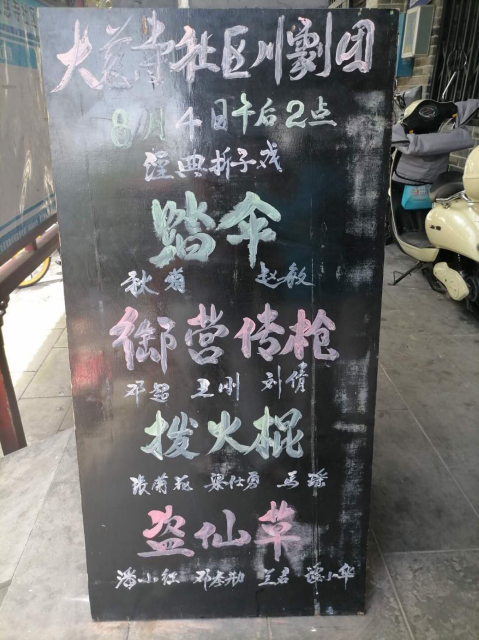 大慈寺社区川剧团
8月4日午后2点
经典折子戏
踏伞
秋眉 赵敏
御营传枪
邓超 王刚 刘倩
拨火棍
张菊花 梁仕勇 马瑶
盗仙草
潘小红 邓孝勤 兰君 谈小华